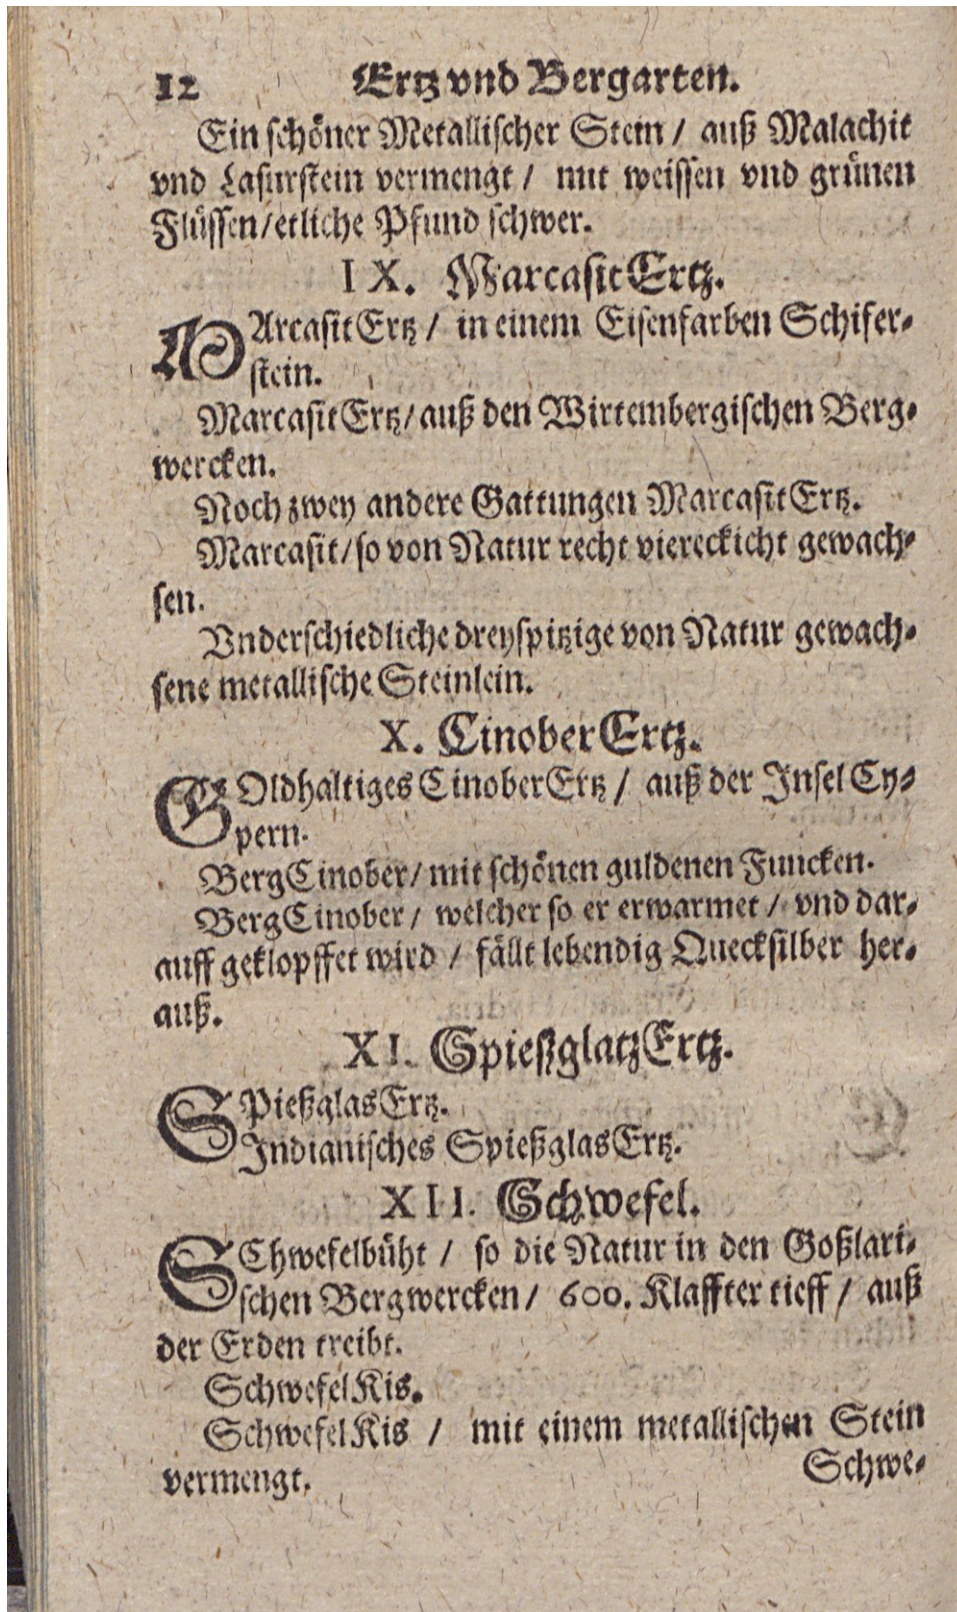 12 Ertz vnd Bergarten.
Ein schöner Metallischer Stein / auß Malachit
vnd Lasurstein vermengt / mit weissen vnd grünen
Flüssen / etliche Pfund schwer.
IX. MarcasitErtz.
MArcasitErtz / in einem Eisenfarben Schifer-
stein.
MarcasitErtz / auß den Wirtembergischen Berg-
wercken.
Noch zwey andere Gattungen MarcasitErtz.
Marcasit / so von Natur recht viereckicht gewach-
sen.
Vnderschiedliche dreyspitzige von Natur gewach-
sene metallische Steinlein.
X. CinoberErtz.
GOldhaltiges CinoberErtz / auß der Insel Cy-
pern.
BergCinober / mit schönen guldenen Funcken.
BergCinober / welcher so er erwarmet / vnd dar-
auff geklopffet wird / fällt lebendig Quecksilber her-
auß.
XI. SpießglatzErtz.
SPießglasErtz.
Indianisches SpießglasErtz.
XII. Schwefel.
SChwefelbüht / so die Natur in den Goßlari-
schen Bergwercken / 600. Klaffter tieff / auß
der Erden treibt.
SchwefelKis.
SchwefelKis / mit einem metallischen Stein
vermengt.
Schwe-